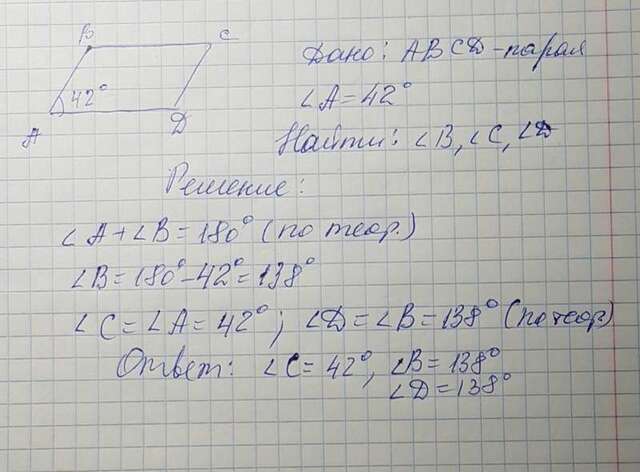 B C
42°
A D
Дано: ABCD - парал
∠A = 42°
Найти: ∠B, ∠C, ∠D
Решение:
∠A + ∠B = 180° (по теор.)
∠B = 180° - 42° = 138°
∠C = ∠A = 42° ; ∠D = ∠B = 138° (по теор)
Ответ: ∠C = 42°, ∠B = 138°
∠D = 138°